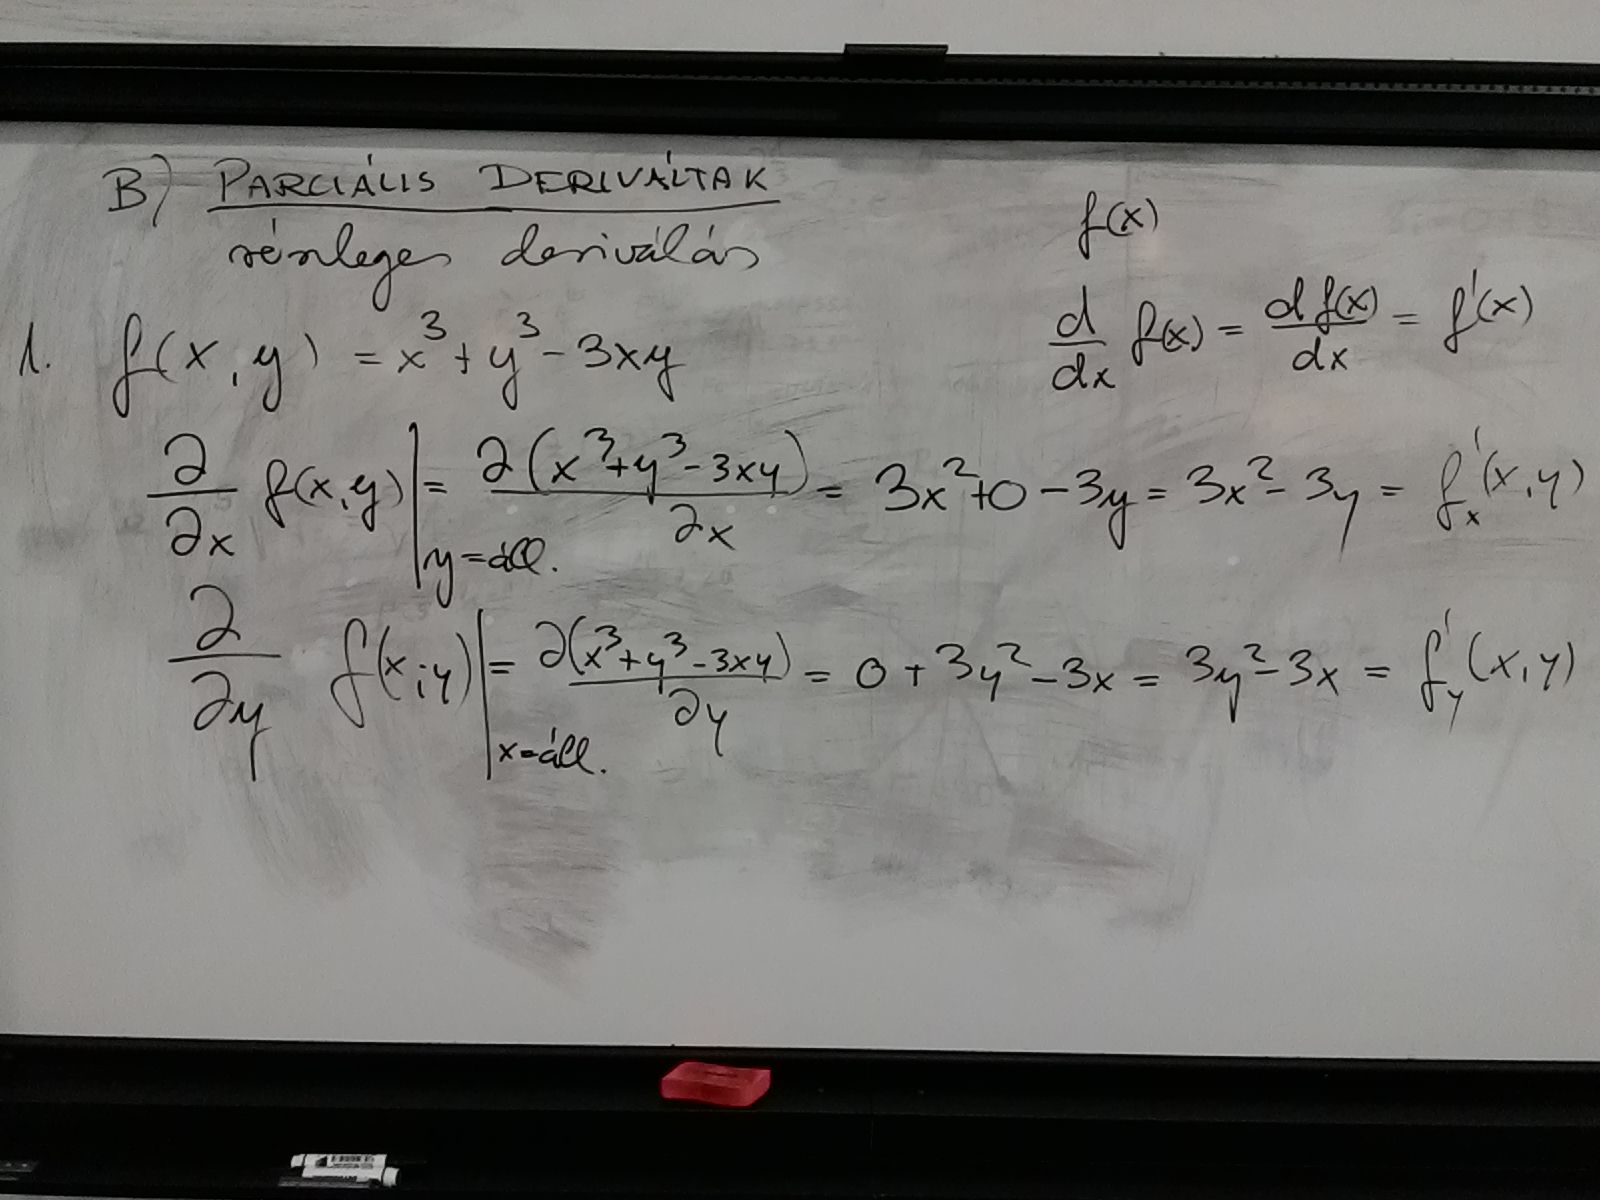 B) PARCIÁLIS DERIVÁLTAK
részleges deriválás
f(x)
d/dx f(x) = df(x)/dx = f'(x)
1. f(x,y) = x³+y³-3xy
∂/∂x f(x,y)|y=áll. = ∂(x³+y³-3xy)/∂x = 3x²+0-3y = 3x²-3y = f'x(x,y)
∂/∂y f(x;y)|x=áll. = ∂(x³+y³-3xy)/∂y = 0+3y²-3x = 3y²-3x = f'y(x,y)